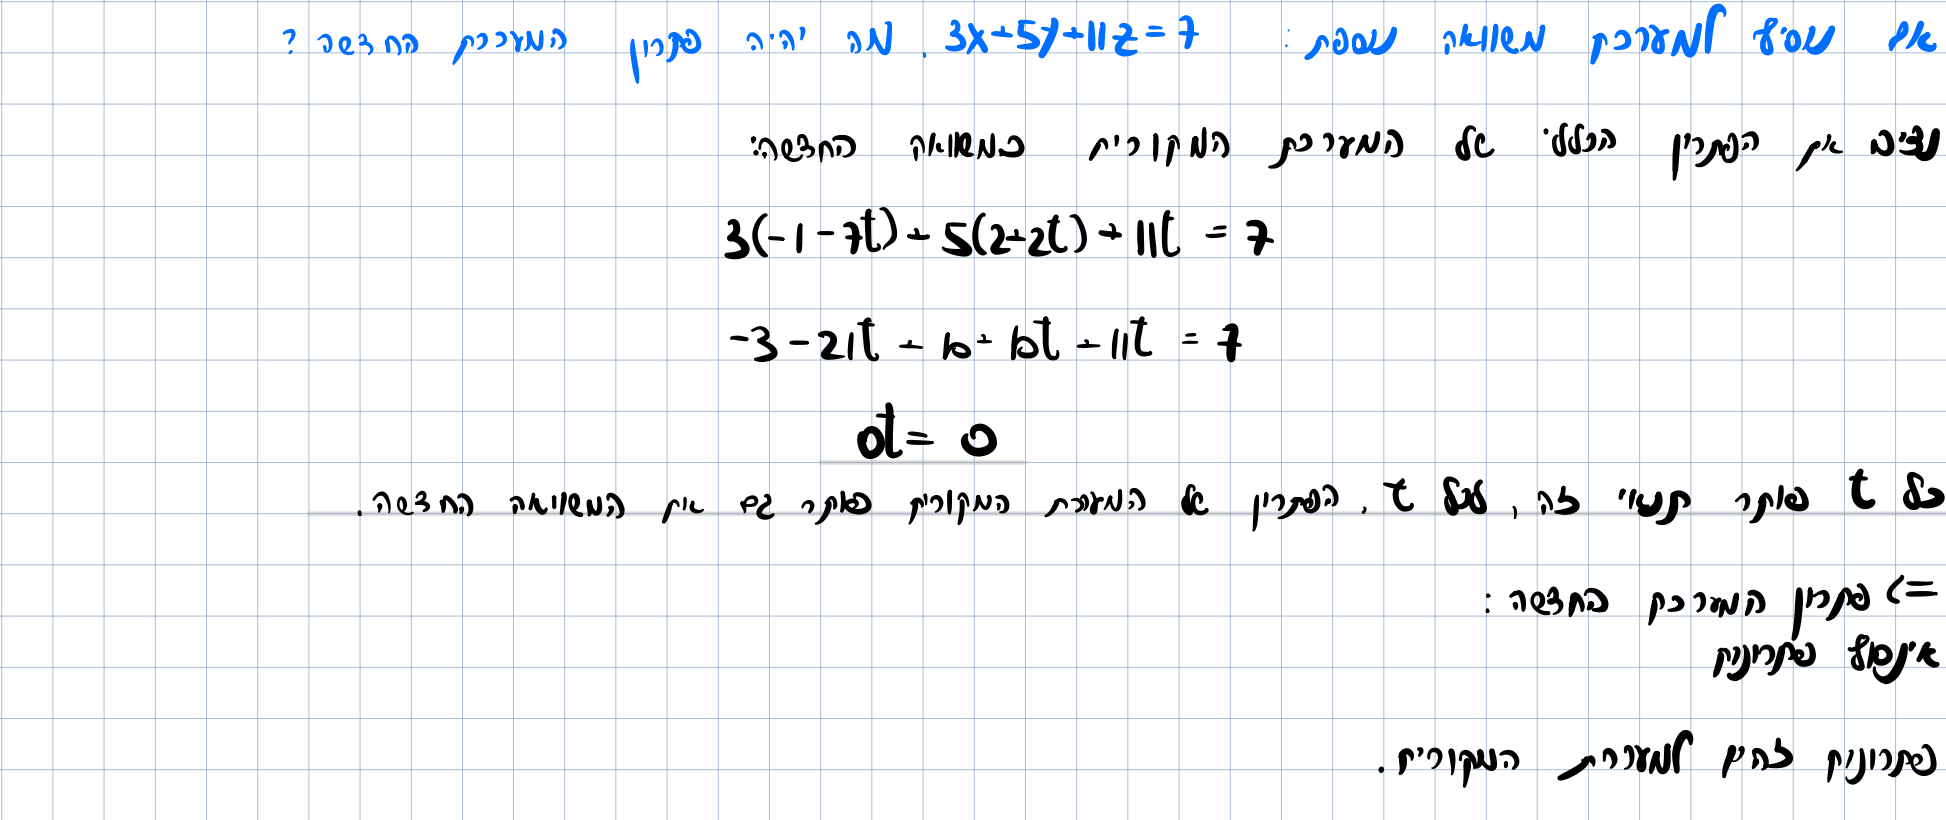 אם נוסיף למערכת משוואה נוספת: 3x+5y+11z=7. מה יהיה פתרון המערכת החדשה?
נציב את הפתרון הכללי של המערכת המקורית במשוואה החדשה:
3(-1-7t)+5(2+2t)+11t=7
-3-21t+10+10t+11t=7
0t=0
כל t פותר תנאי זה, לכל t, הפתרון של המערכת המקורית פותר גם את המשוואה החדשה.
<= פתרון המערכת החדשה:
אינסוף פתרונות
פתרונות זהים למערכת המקורית.